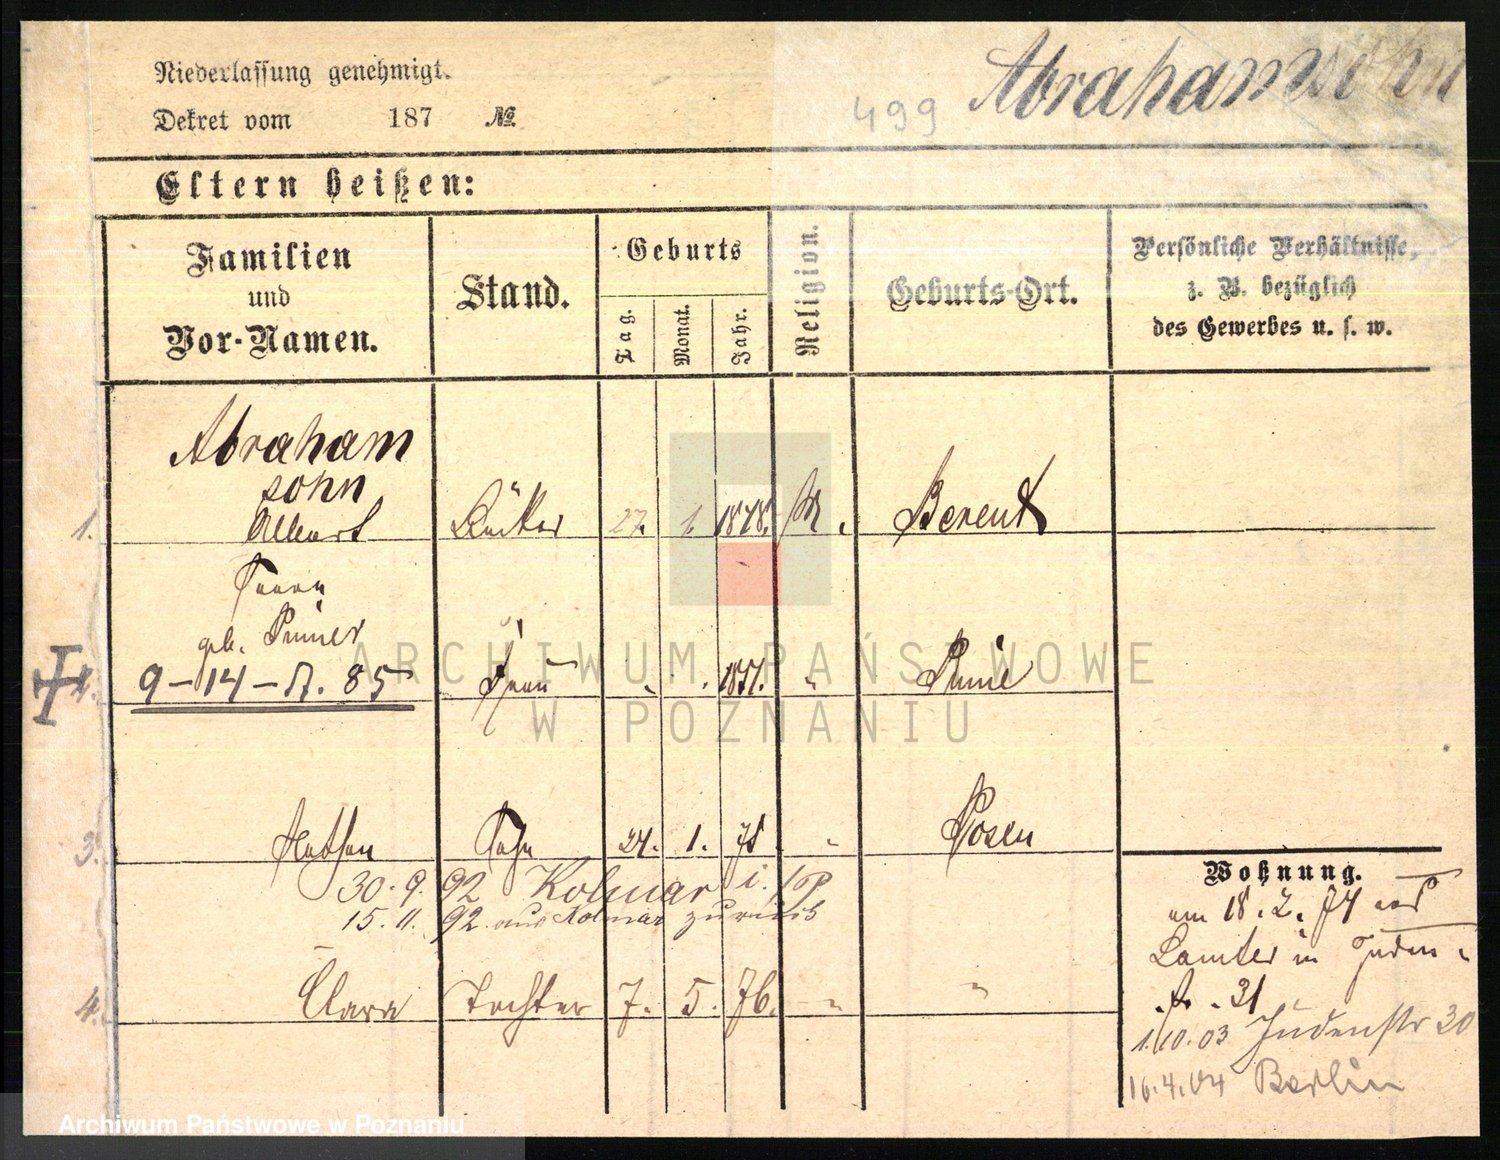 Niederlassung genehmigt.
499 Abrahamsohn
Dekret vom 187 №
Eltern heißen:
Familien und Vor-Namen.
Stand.
Geburts
Tag.
Monat.
Jahr.
Religion.
Geburts-Ort.
Persönliche Verhältnisse,
z. B. bezüglich
des Gewerbes u. s. w.
Abraham
sohn
1. Albert 27. 1. 1848. M. Berent
geb.
9-14- 85 Frau
3. Nathan Sohn 24. 1. 75 " Posen
30. 9. 92 Kolmar i./P
15. 11. 92 aus Kolmar zurück
4. Clara Tochter 7. 5. 76. " "
Wohnung.
am 18. 2. 74
in Juden-
str. 31
1.10.03 Judenstr 30
16.4.04 Berlin
ARCHIWUM PAŃSTWOWE
W POZNANIU
Archiwum Państwowe w Poznaniu